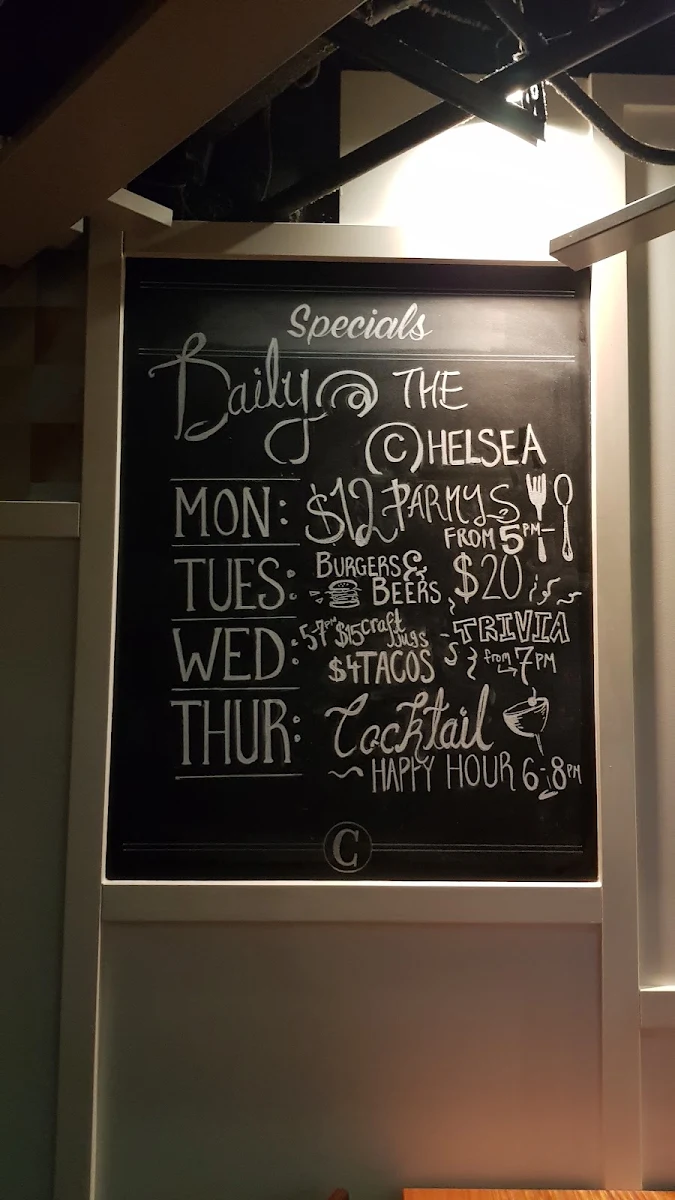 Specials
Daily @ THE
(C)HELSEA
MON: $12 PARMYS
FROM 5PM
TUES: BURGERS & BEERS $20
WED: 5-7PM $15 craft jugs
$4 TACOS
TRIVIA
from 7PM
THUR: Cocktail
HAPPY HOUR 6-8PM
C